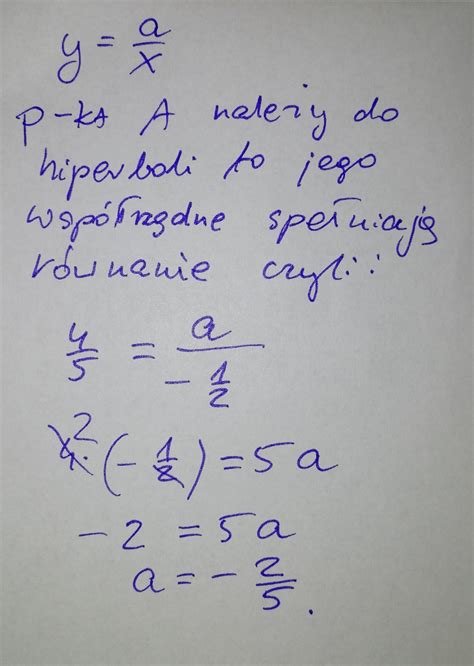 y = a/x
p-kt A należy do
hiperboli to jego
współrzędne spełniają
równanie czyli:
4/5 = a/(-1/2)
4̸² · (-1/2̸) = 5a
-2 = 5a
a = -2/5.